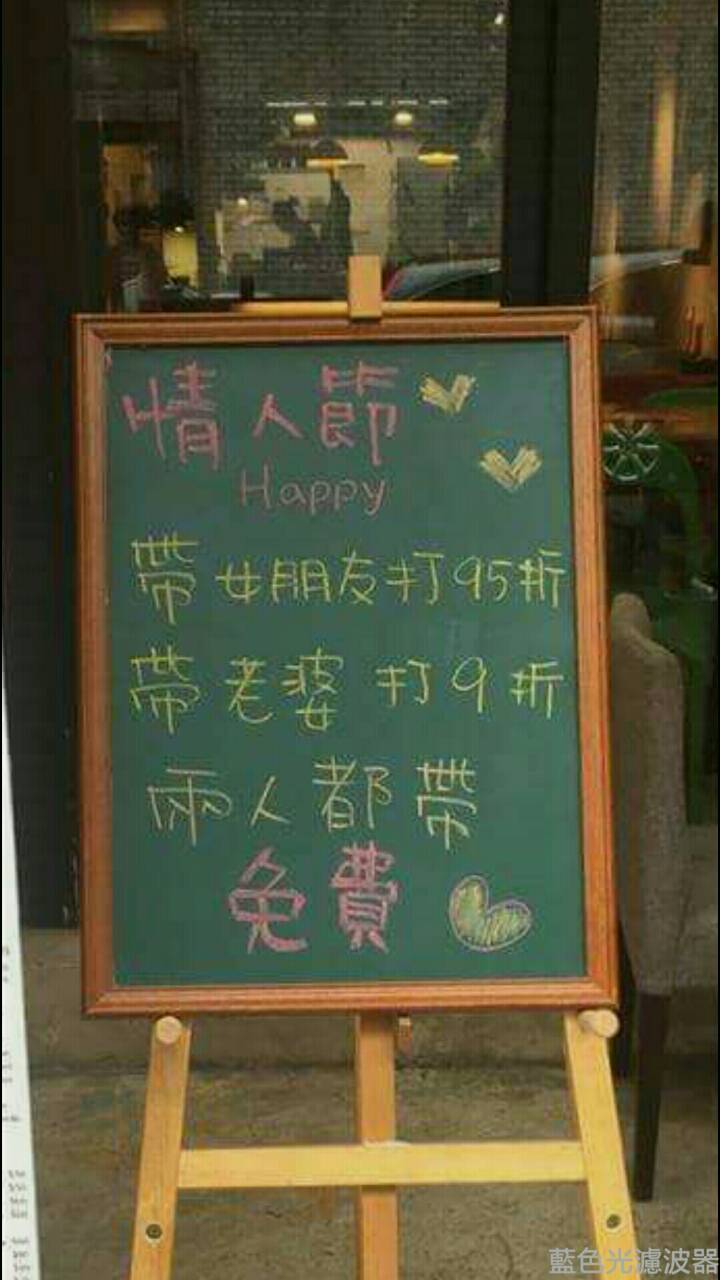 情人節
Happy
帶女朋友打95折
帶老婆打9折
兩人都帶
免費
藍色光濾波器